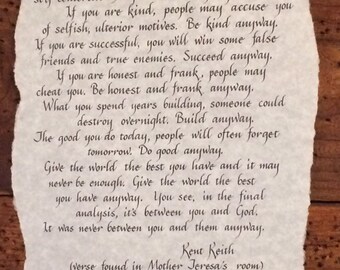 If you are kind, people may accuse you
of selfish, ulterior motives. Be kind anyway.
If you are successful, you will win some false
friends and true enemies. Succeed anyway.
If you are honest and frank, people may
cheat you. Be honest and frank anyway.
What you spend years building, someone could
destroy overnight. Build anyway.
The good you do today, people will often forget
tomorrow. Do good anyway.
Give the world the best you have and it may
never be enough. Give the world the best
you have anyway. You see, in the final
analysis, it's between you and God.
It was never between you and them anyway.
Kent Keith
(verse found in Mother Teresa's room)